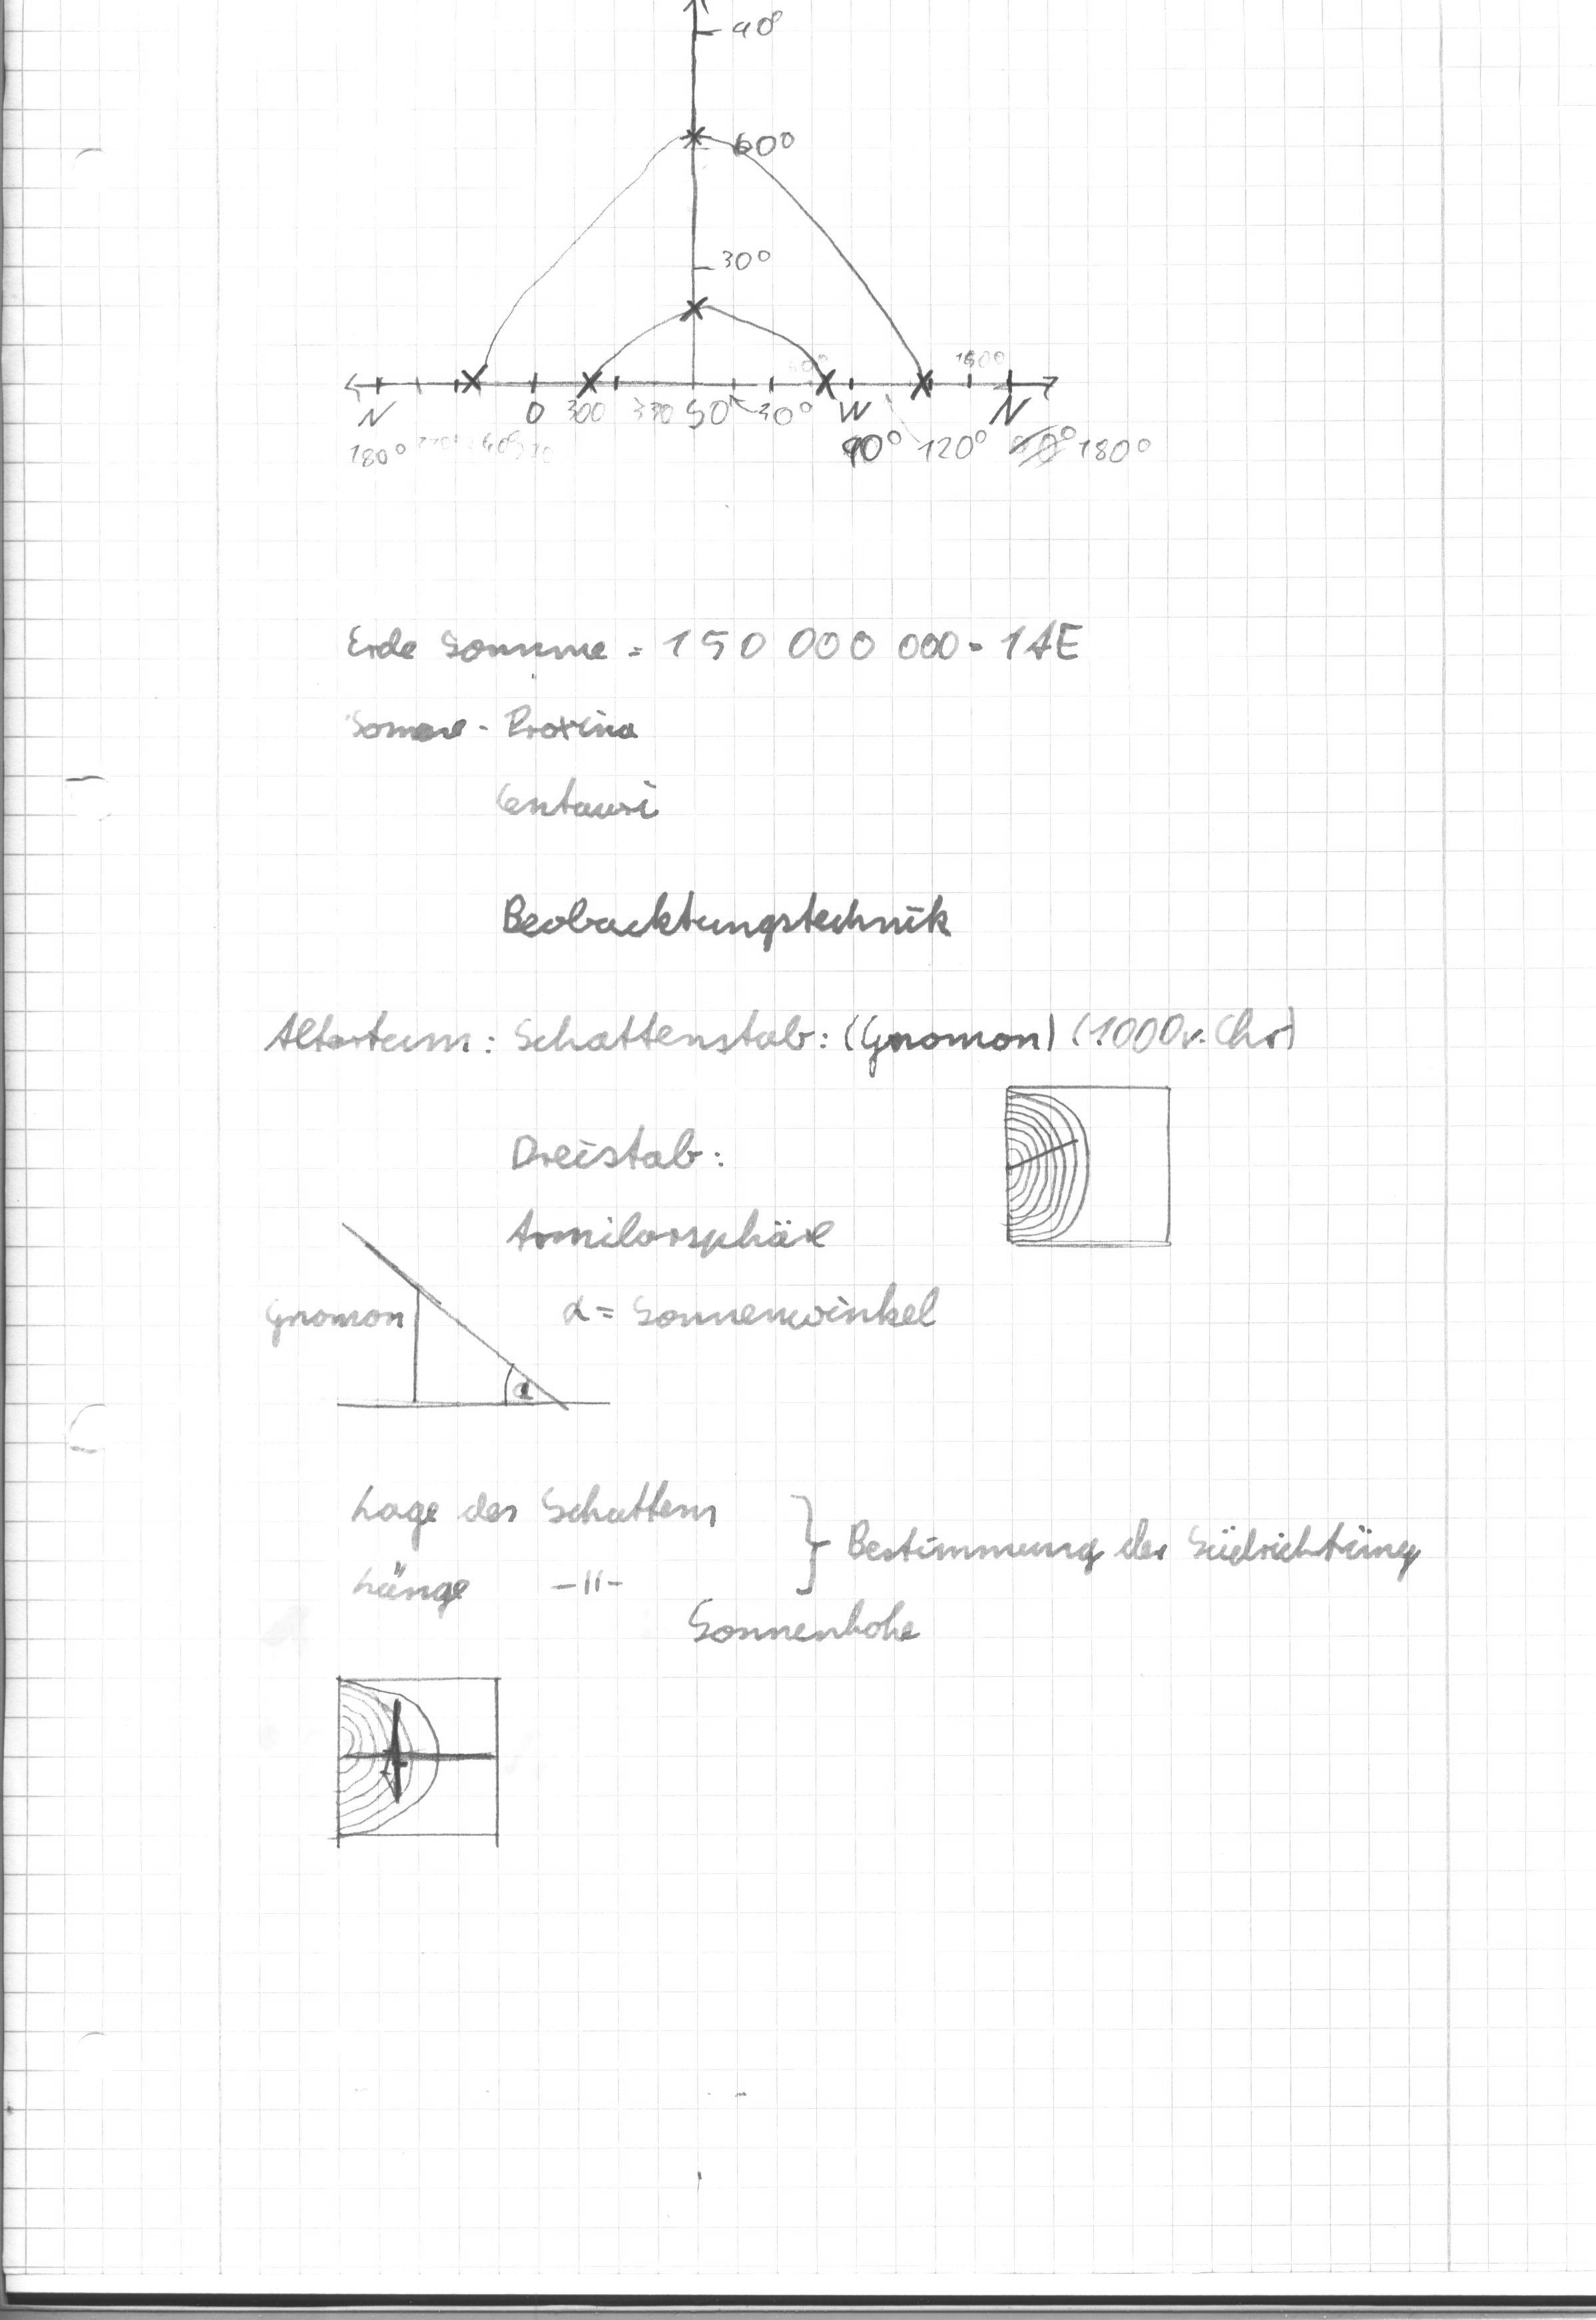 90°
60°
30°
N O 300 330 S0° 30° W N
180° 90° 120° 180°
Erde Sonnne = 150 000 000 = 1AE
Sonne - Proxima
Centauri
Beobachtungstechnik
Altertum: Schattenstab: (Gnomon) (1000v. Chr)
Dreistab:
Armilarsphäre
Gnomon α = Sonnenwinkel
α
Lage des Schattens
Länge -11- } Bestimmung der Südrichtung
Sonnenhöhe